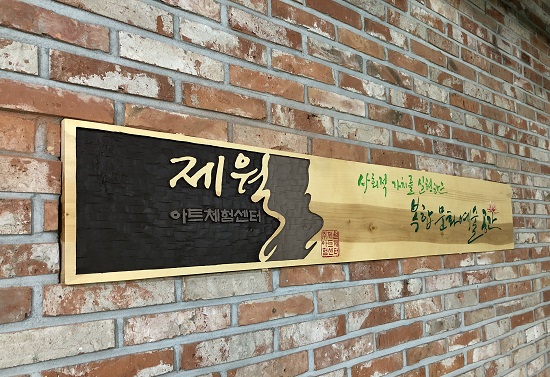 제월
아트체험센터
사회적 가치를 실현하는
복합 문화예술공간
㈜제월
아트체
험센터